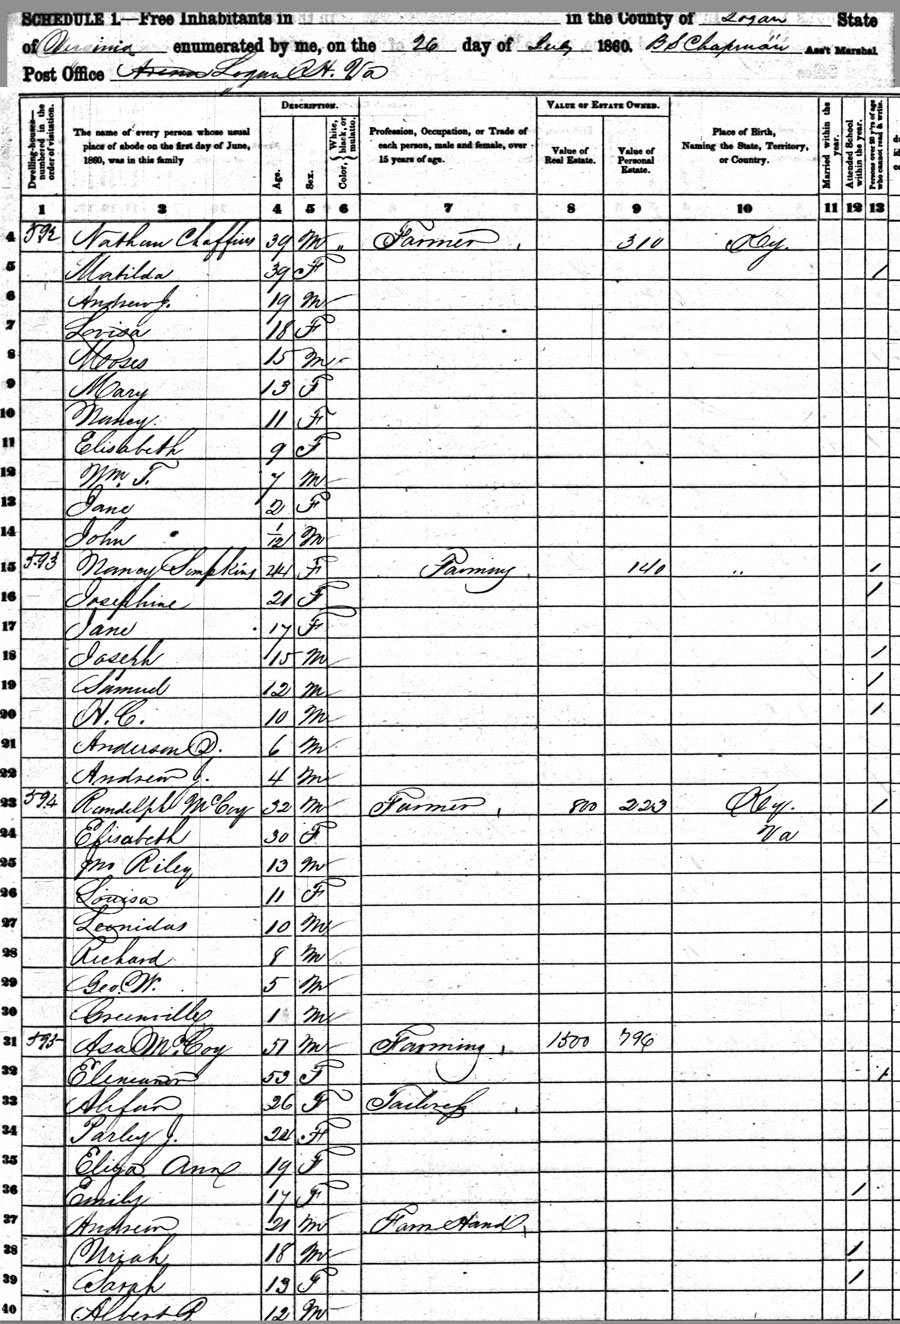 SCHEDULE 1.—Free Inhabitants in in the County of Logan State
of Virginia enumerated by me, on the 26 day of July 1860. B S Chapman Ass't Marshal
Post Office Logan C.H. Va
Dwelling-houses—numbered in the order of visitation.
The name of every person whose usual place of abode on the first day of June, 1860, was in this family
DESCRIPTION.
Age.
Sex.
Color, { White, black, or mulatto.
Profession, Occupation, or Trade of each person, male and female, over 15 years of age.
VALUE OF ESTATE OWNED.
Value of Real Estate.
Value of Personal Estate.
Place of Birth, Naming the State, Territory, or Country.
Married within the year.
Attended School within the year.
Persons over 20 y'rs of age who cannot read & write.
1 3 4 5 6 7 8 9 10 11 12 13
4 592 Nathan Chaffins 39 M " Farmer 310 Ky.
5 Matilda 39 F /
6 Andrew J. 19 M
7 Lovisa 18 F
8 Moses 15 M
9 Mary 13 F
10 Nancy 11 F
11 Elisabeth 9 F
12 Wm. T. 7 M
13 Jane 2 F
14 John 1/12 M
15 593 Nancy Simpkins 44 F Farming 140 " /
16 Josephine 21 F /
17 Jane 17 F
18 Joseph 15 M /
19 Samuel 12 M /
20 A. C. 10 M /
21 Anderson D. 6 M
22 Andrew J. 4 M
23 594 Randolph McCoy 32 M Farmer 800 223 Ky. /
24 Elisabeth 30 F Va
25 Jno Riley 13 M
26 Louisa 11 F
27 Leonidas 10 M
28 Richard 8 M
29 Geo. W. 5 M
30 Greenville 1 M
31 595 Asa McCoy 51 M Farming 1500 796
32 53 F /
33 26 F Tailress
34 Parley J. 24 F
35 Eliza Ann 19 F
36 Emily 17 F /
37 Andrew 21 M Farm Hand
38 Uriah 18 M /
39 Sarah 13 F /
40 Albert 12 M